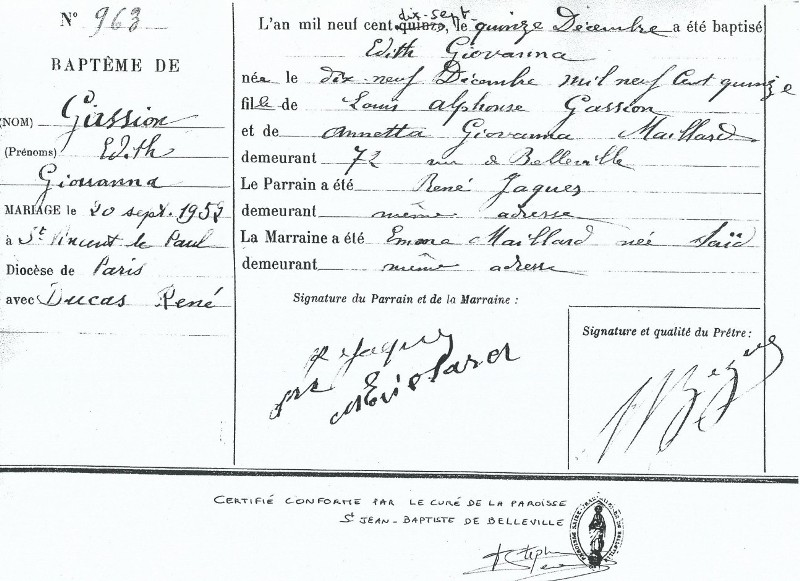 N° 963
BAPTÊME DE
(NOM) Gassion
(Prénoms) Edith
Giovanna
MARIAGE le 20 sept. 1952
à St Vincent de Paul
Diocèse de Paris
avec Ducas René
dix-sept
L'an mil neuf cent quinze, le quinze Décembre a été baptisé
Edith Giovanna
née le dix-neuf Décembre mil neuf cent quinze
fille de Louis Alphonse Gassion
et de Annetta Giovanna Maillard
demeurant 72 rue de Belleville
Le Parrain a été René Jaques
demeurant même adresse
La Marraine a été Emma Maillard née Saïd
demeurant même adresse
Signature du Parrain et de la Marraine :
R Jaques
Signature et qualité du Prêtre :
CERTIFIÉ CONFORME PAR LE CURÉ DE LA PAROISSE
St JEAN-BAPTISTE DE BELLEVILLE